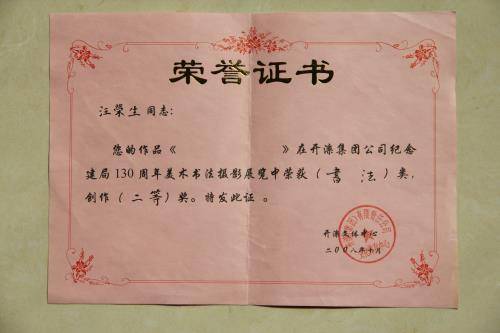 荣誉证书
汪荣生同志：
您的作品《 》在开滦集团公司纪念
建局130周年美术书法摄影展览中荣获（书 法）类，
创作（二等）奖。特发此证。
开滦文体中心
二00八年十月